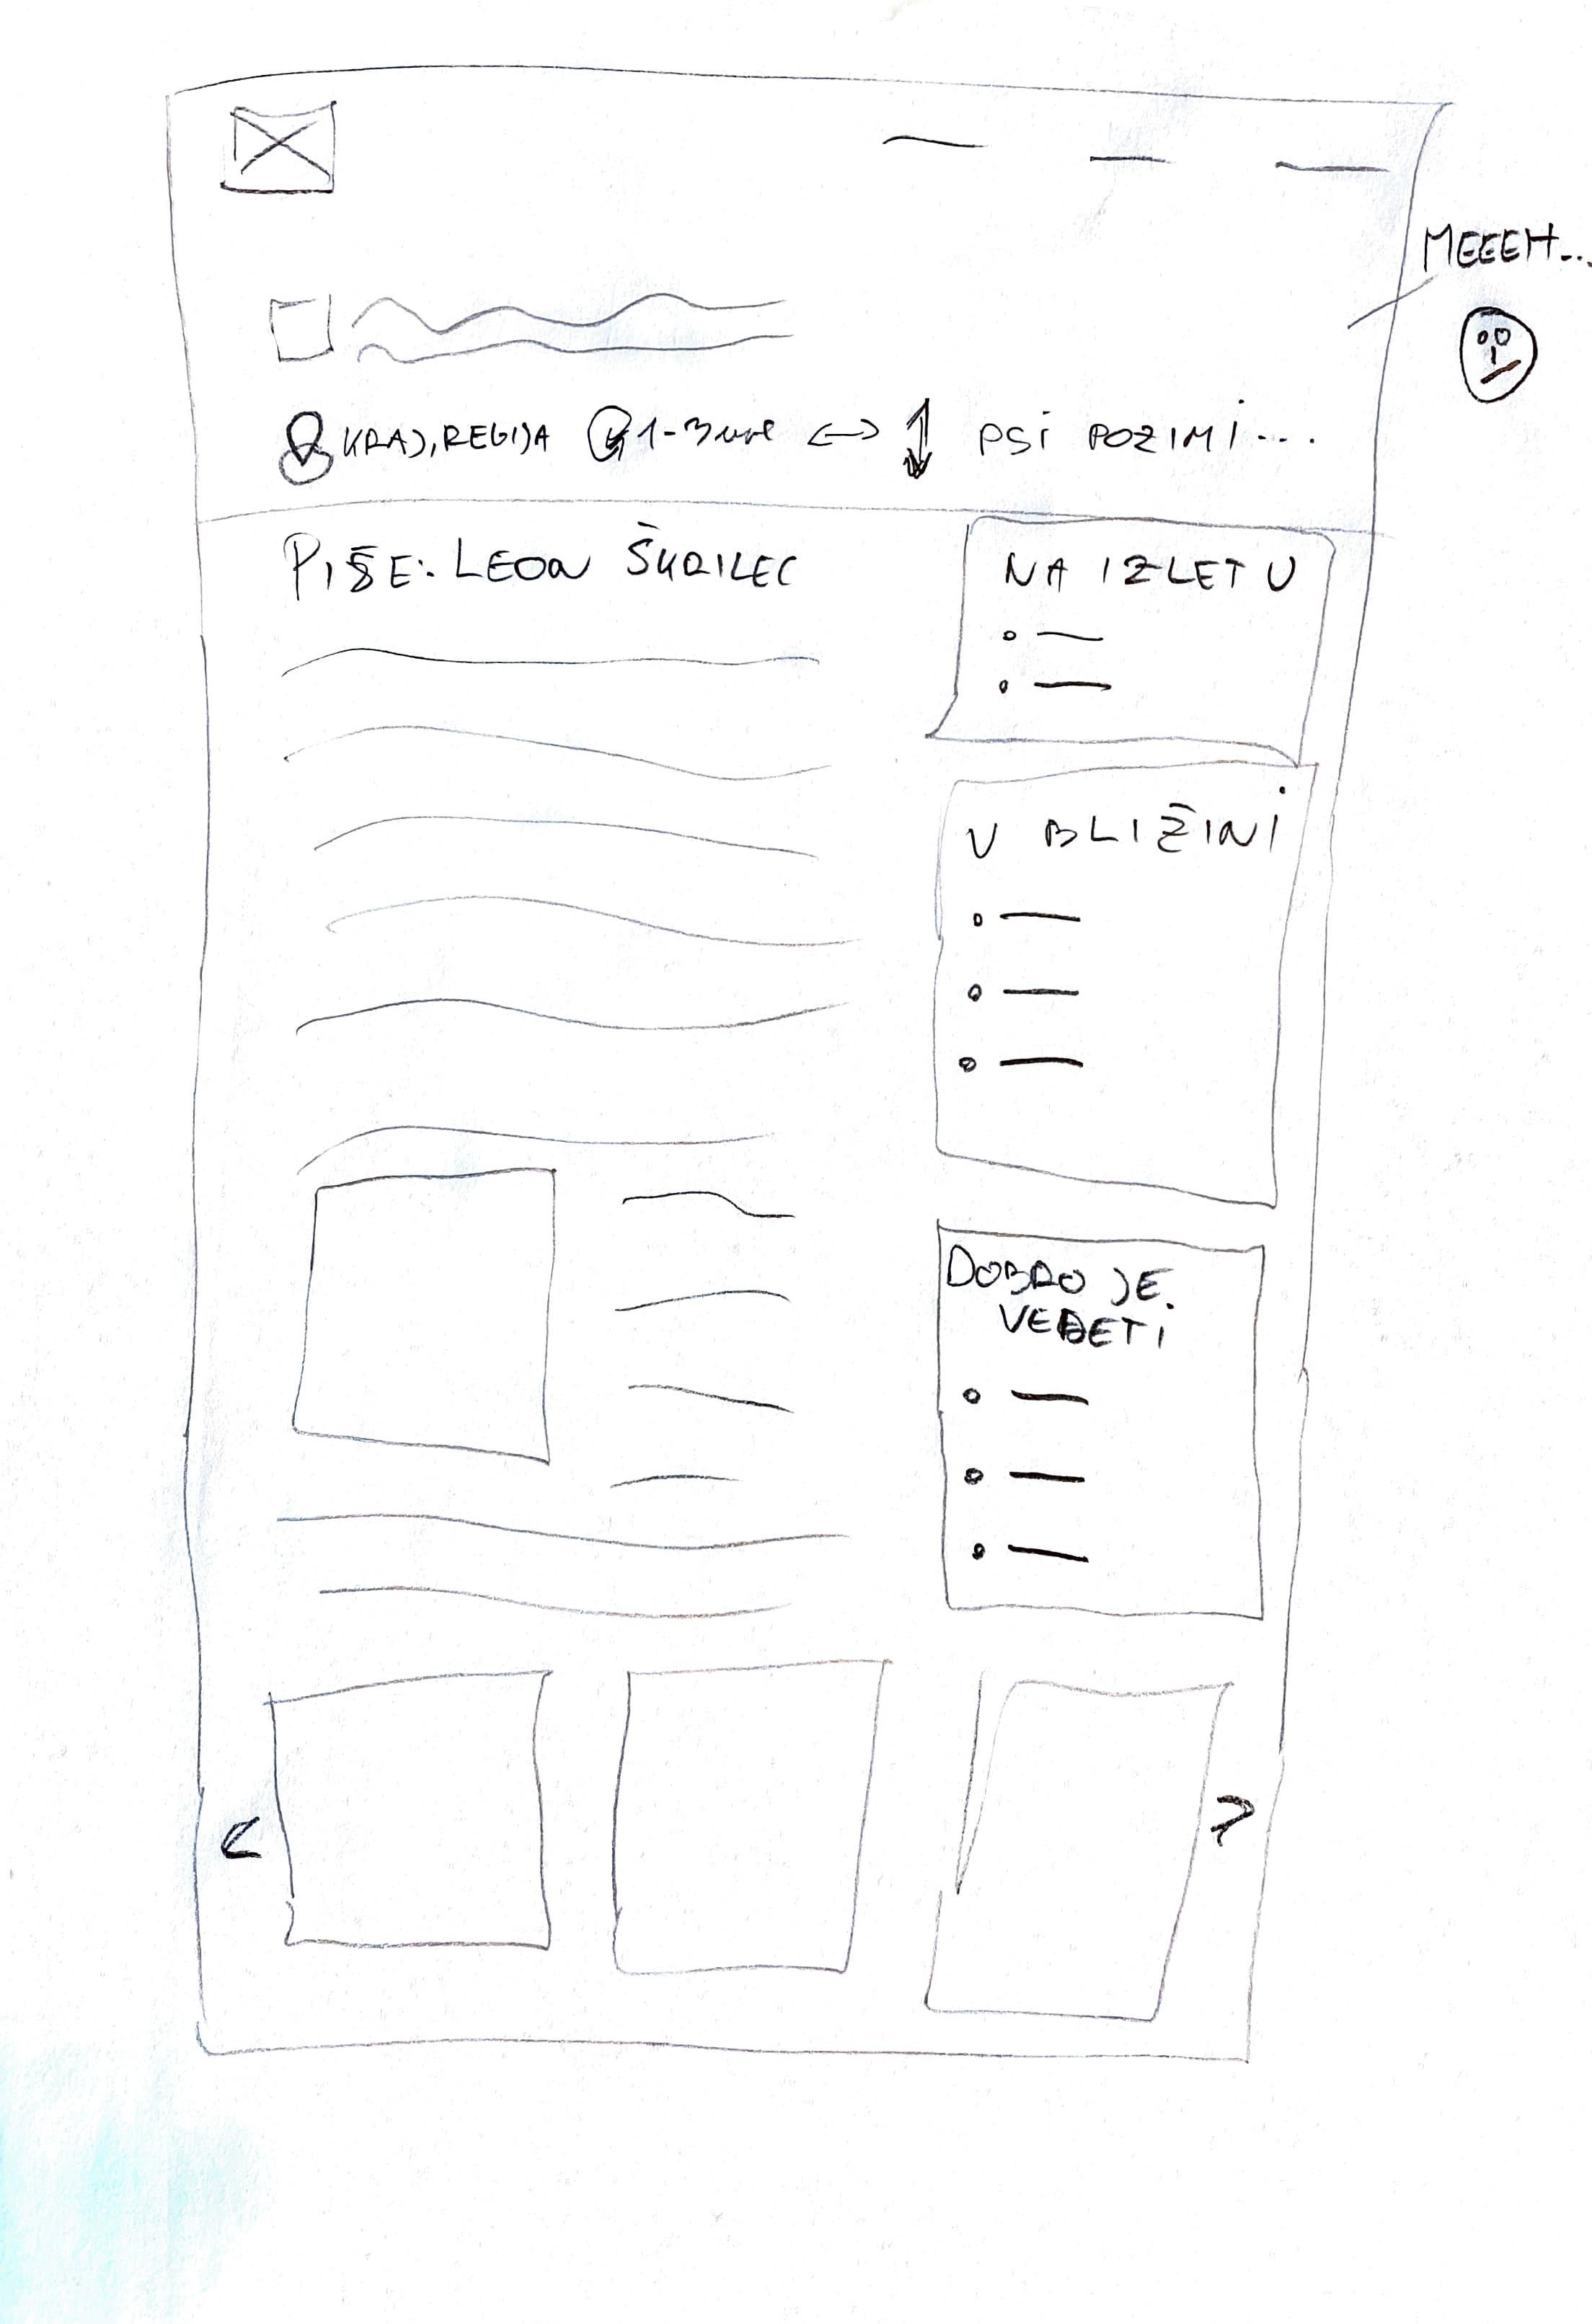 MEEEH...
KRAJ, REGIJA 1-3 ure PSI POZIMI...
PIŠE: LEON ŠKRILEC
NA IZLETU
V BLIŽINI
DOBRO JE
VEDETI